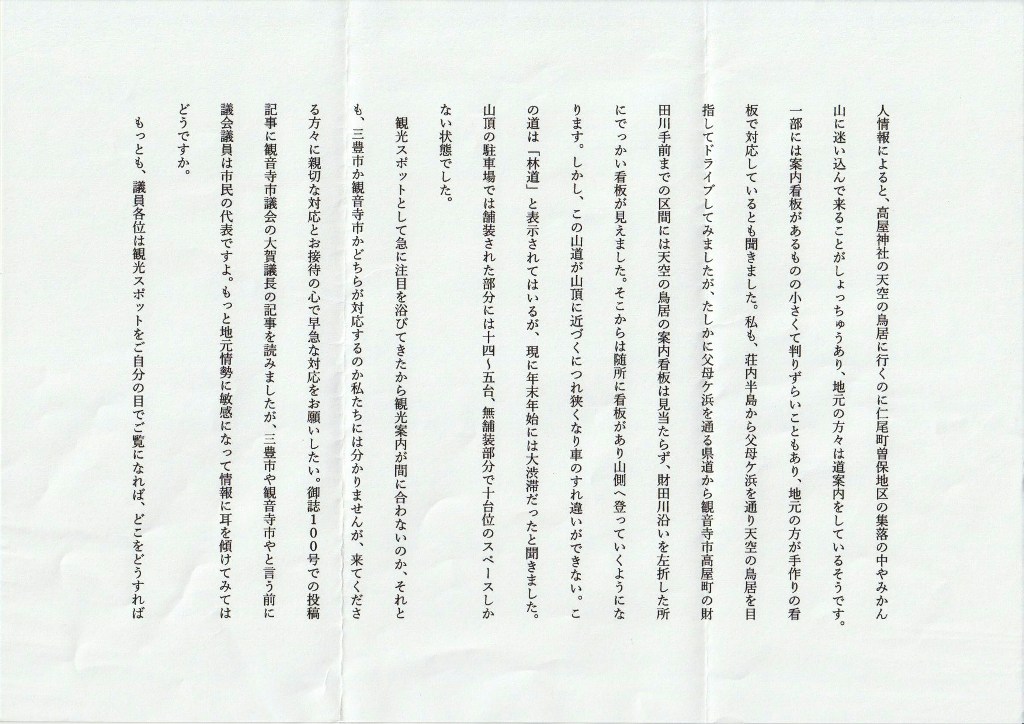 人情報によると、高屋神社の天空の鳥居に行くのに仁尾町曽保地区の集落の中やみかん
山に迷い込んで来ることがしょっちゅうあり、地元の方々は道案内をしているそうです。
一部には案内看板があるものの小さくて判りずらいこともあり、地元の方が手作りの看
板で対応しているとも聞きました。私も、荘内半島から父母ケ浜を通り天空の鳥居を目
指してドライブしてみましたが、たしかに父母ケ浜を通る県道から観音寺市高屋町の財
田川手前までの区間には天空の鳥居の案内看板は見当たらず、財田川沿いを左折した所
にでっかい看板が見えました。そこからは随所に看板があり山側へ登っていくようにな
ります。しかし、この山道が山頂に近づくにつれ狭くなり車のすれ違いができない。こ
の道は「林道」と表示されてはいるが、現に年末年始には大渋滞だったと聞きました。
山頂の駐車場では舗装された部分には十四～五台、無舗装部分で十台位のスペースしか
ない状態でした。
観光スポットとして急に注目を浴びてきたから観光案内が間に合わないのか、それと
も、三豊市か観音寺市かどちらが対応するのか私たちには分かりませんが、来てくださ
る方々に親切な対応とお接待の心で早急な対応をお願いしたい。御誌１００号での投稿
記事に観音寺市議会の大賀議長の記事を読みましたが、三豊市や観音寺市やと言う前に
議会議員は市民の代表ですよ。もっと地元情勢に敏感になって情報に耳を傾けてみては
どうですか。
もっとも、議員各位は観光スポットをご自分の目でご覧になれば、どこをどうすれば